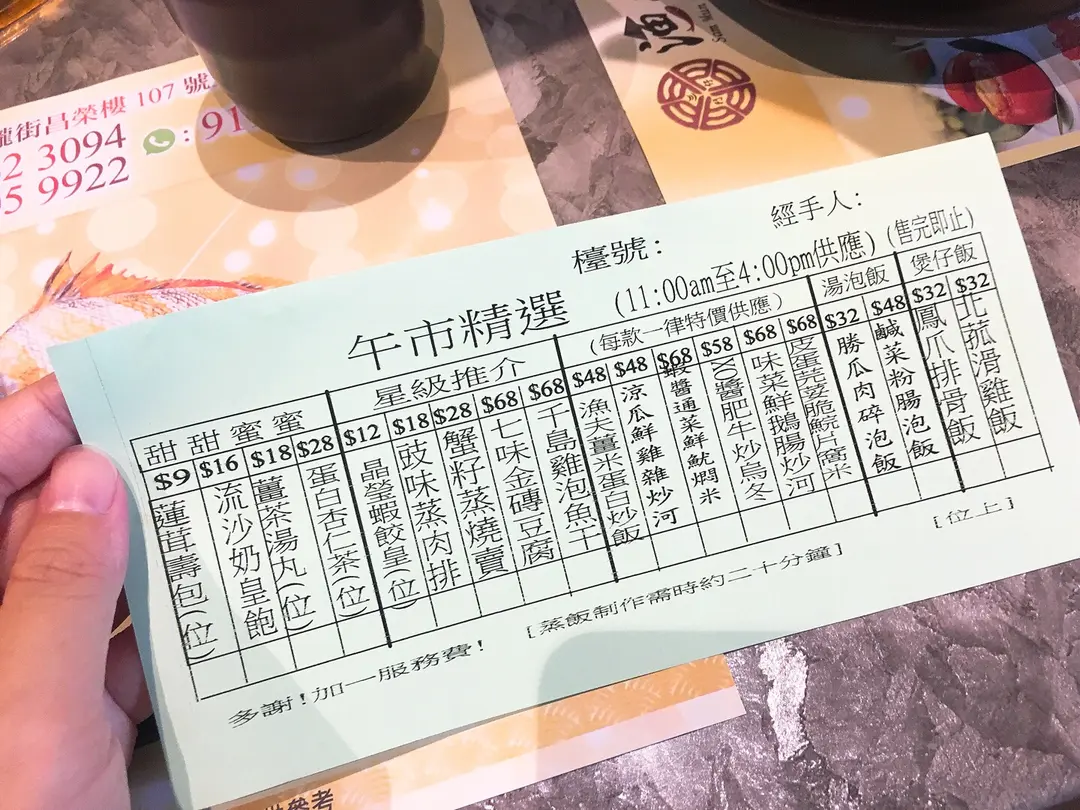 龍街昌榮樓 107 號
2 3094 : 91
5 9922
漁
經手人:
檯號:
午市精選 (11:00am至4:00pm供應) (售完即止)
甜甜蜜蜜
$9 蓮茸壽包(位)
$16 流沙奶皇飽
$18 薑茶湯丸(位)
$28 蛋白杏仁茶(位)
星級推介
$12 晶瑩蝦餃皇(位)
$18 豉味蒸肉排
$28 蟹籽蒸燒賣
$68 七味金磚豆腐
$68 千島雞泡魚干
(每款一律特價供應)
$48 漁夫薑米蛋白炒飯
$48 涼瓜鮮雞雜炒河
$68 蝦醬通菜鮮魷燜米
$58 XO醬肥牛炒烏冬
$68 味菜鮮鵝腸炒河
$68 皮蛋芫荽脆鯇片窩米
湯泡飯
$32 勝瓜肉碎泡飯
$48 鹹菜粉腸泡飯
煲仔飯
$32 鳳爪排骨飯
$32 北菇滑雞飯
[位上]
多謝!加一服務費! [蒸飯制作需時約二十分鐘]
供參考